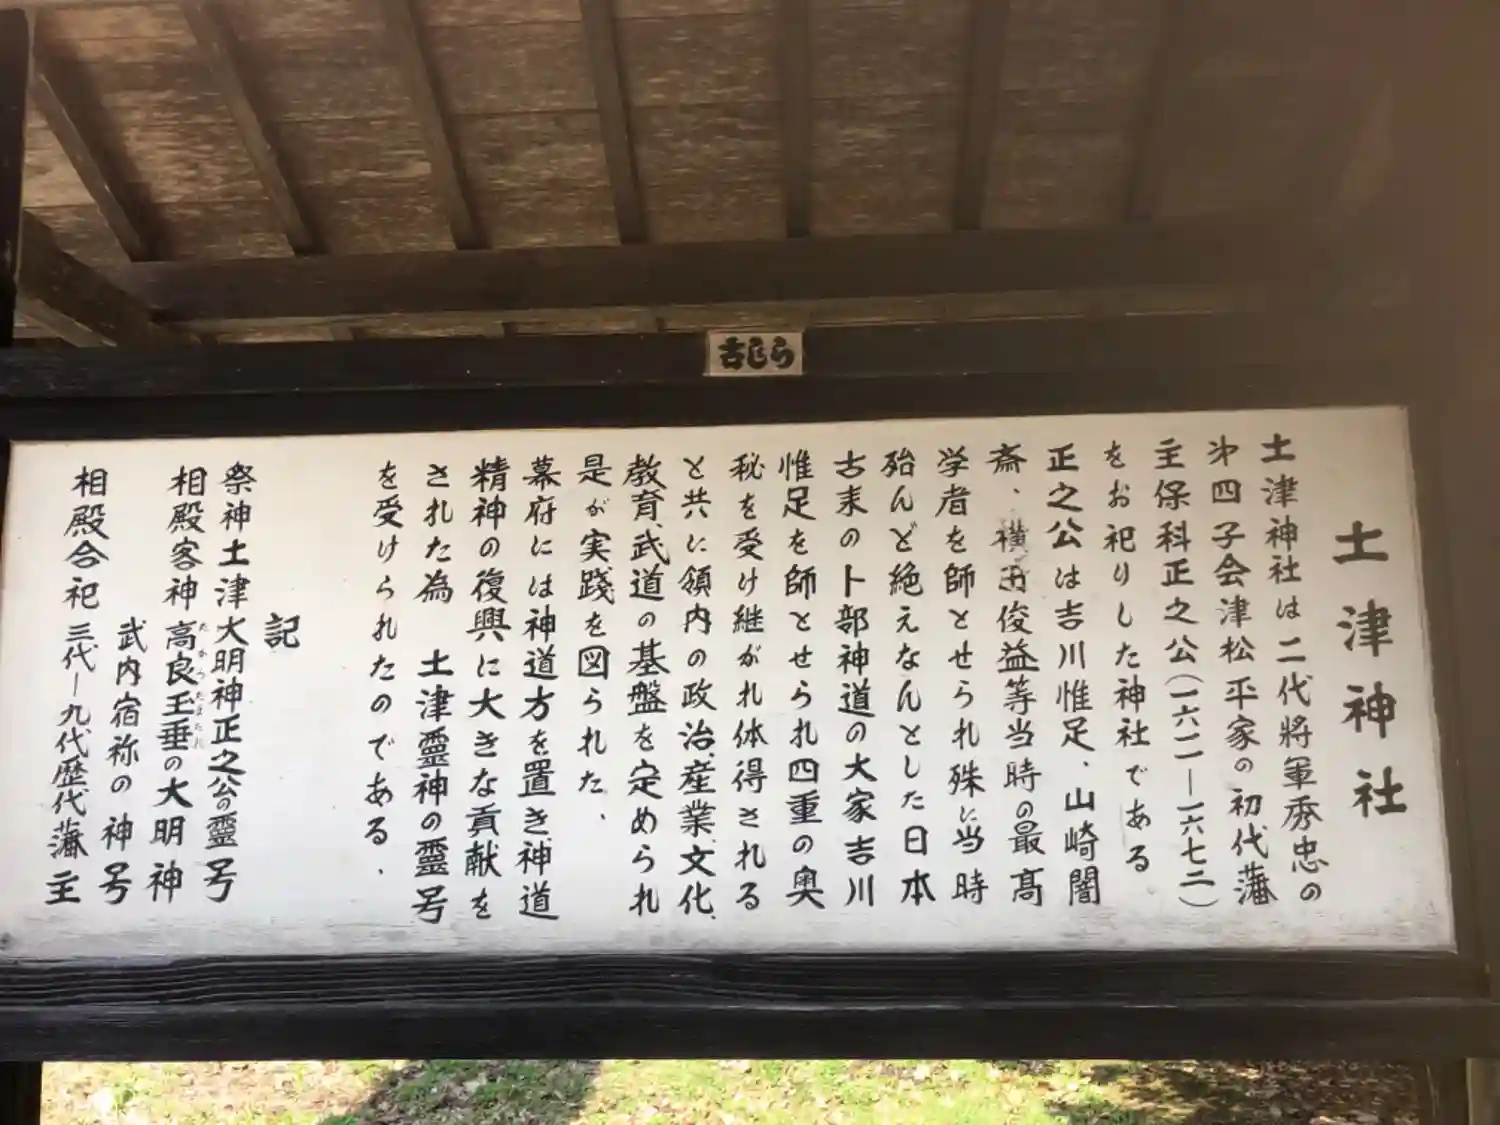 古しら
土津神社
土津神社は二代將軍秀忠の
㐧四子会津松平家の初代藩
主保科正之公(一六一一―一六七二)
をお祀りした神社である
正之公は吉川惟足、山崎闇
斎、横田俊益等当時の最高
学者を師とせられ殊に当時
殆んど絶えなんとした日本
古来の卜部神道の大家吉川
惟足を師とせられ四重の奥
秘を受け継がれ体得される
と共に領内の政治、産業、文化、
教育、武道の基盤を定められ
是が実践を図られた、
幕府には神道方を置き、神道
精神の復興に大きな貢献を
された為 土津霊神の霊号
を受けられたのである.
記
祭神土津大明神正之公の霊号
相殿客神 高良玉垂の大明神
武内宿祢の神号
相殿合祀 三代―九代歴代藩主